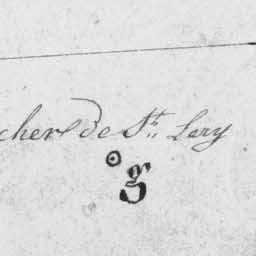 cher de St. Lery
g